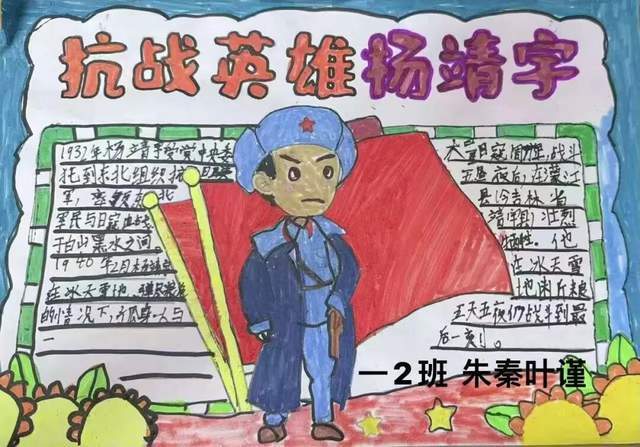 抗战英雄杨靖宇
1932年杨靖宇受党中央委
托到东北组织抗日联
军，率领东北
军民与日寇血战
于白山黑水之间。
1940年2月杨靖宇
在冰天雪地，弹尽粮绝
的情况下，孤身一人与
一
大量日寇周旋，战斗
五昼夜后，在蒙江
县今吉林省
靖宇县，壮烈
牺牲。他
在冰天雪
地
五天五夜
战斗到最
后一刻！
一2班 朱秦叶谨